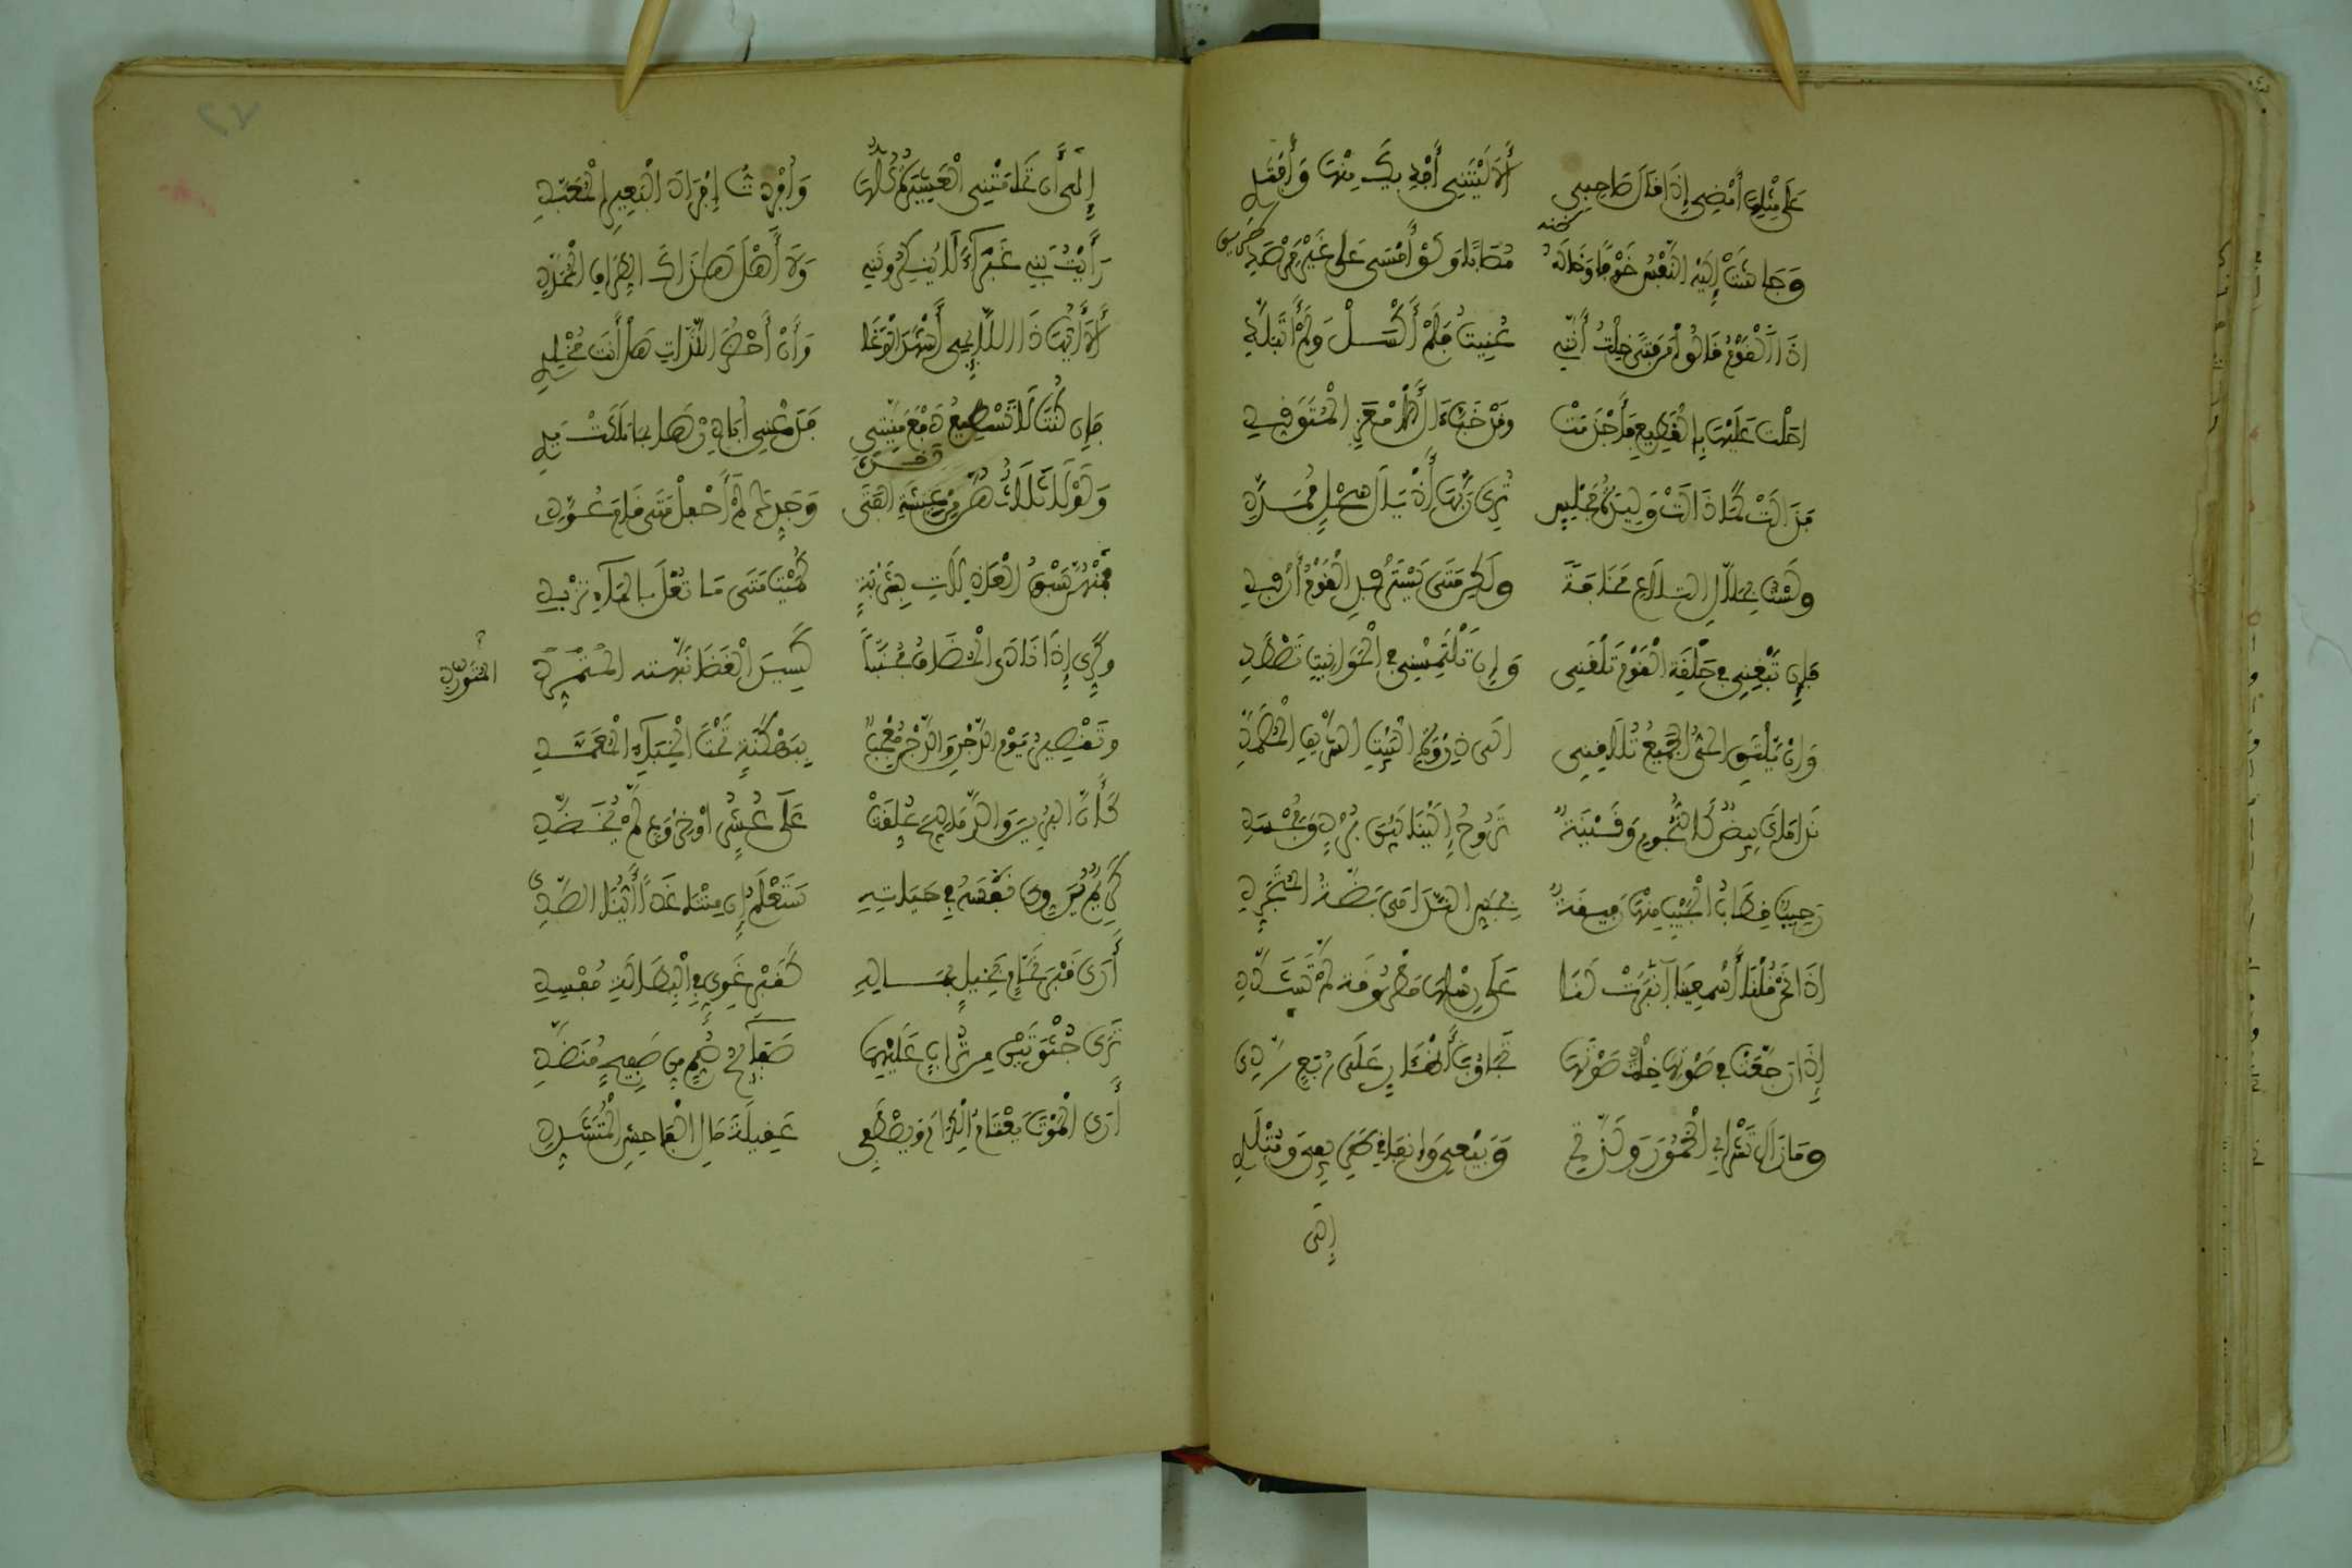 عَلَى مِثْلِهَا أَمْضِى إِذَا قَالَ صَاحِبِى أَلَا لَيْتَنِى أَفْدِيكَ مِنْهَا وَأَفْتَدِ
وَجَاشَتْ إِلَيْهِ النَّفْسُ خَوْفًا وَخَالَهُ مُصَابًا وَلَوْ أَمْسَى عَلَى غَيْرِ مَرْصَدِ
اذَا الْقَوْمُ قَالُوا مَن فَتًى خِلْتُ أَنَّنِى عُنِيتُ فَلَمْ أَكْسَلْ وَلَمْ أَتَبَلَّدِ
احَلْتُ عَلَيْهَا بِالْقَطِيعِ فَأَجْذَمَتْ وقَدْ خَبَّ ءَالُ الْأَمْعَزِ الْمُتَوَقِّدِ
فَذَالَتْ كَمَا ذَالَتْ وَلِيدَةُ مَجْلِسٍ تُرِى رَبَّهَا أَذْيَالَ سَحْلٍ مُمَدَّدِ
ولَسْتُ بِحَلَّالِ التِّلَاعِ مَخَافَةً ولَكِنْ مَتَى يَسْتَرْفِدِ الْقَوْمُ أَرْفِدِ
فَإِن تَبْغِنِى فِى حَلْقَةِ الْقَوْمِ تَلْقَنِى وَإِن تَلْتَمِسْنِى فِى الْحَوَانِيتِ تَصْطَدِ
وَإِنْ يَلْتَقِ الْحَىُّ الْجَمِيعُ تُلَاقِنِى الَى ذِرْوَةِ الْبَيْتِ الشَّرِيفِ الْمُصَمَّدِ
نَدَامَاىَ بِيضٌ كَالنُّجُومِ وَقَيْنَةٌ تَرُوحُ إِلَيْنَا بَيْنَ بُرْدٍ وَمُجْسَدِ
رَحِيبٌ قِطَابُ الْجَيْبِ مِنْهَا رَفِيقَةٌ بِجَسِّ النَّدَامَى بَضَّةُ الْمُتَجَرَّدِ
اذَا نَحْنُ قُلْنَا أَسْمِعِينَا انْبَرَتْ لَنَا عَلَى رِسْلِهَا مَطْرُوفَةً لَمْ تَشَدَّدِ
إِذَا رَجَّعَتْ فِى صَوْتِهَا خِلْتَ صَوْتَهَا تَجَاوُبَ أَظْئَارٍ عَلَى رُبَعٍ رَدِى
ومَازَالَ تَشْرَابِى الْخُمُورَ وَلَذَّتِى وَبَيْعِى وَإِنفَاقِى طَرِيفِى وَمُتْلَدِ
إِلَى
إِلَى أَن تَحَامَتْنِى الْعَشِيرَةُ كُلُّهَا وَأُفْرِدْتُ إِفْرَادَ الْبَعِيرِ الْمُعَبَّدِ
رَأَيْتُ بَنِى غَبْرَآءَ لَا يُنكِرُونَنِى وَلَا أَهْلُ هَذَاكَ الطِّرَافِ الْمُمَدَّدِ
أَلَا أَيُّهَذَا اللَّائِمِى أَشْهَدُ الْوَغَا وَأَنْ أَحْضُرُ اللَّذَّاتِ هَلْ أَنتَ مُخْلِدِ
فَإِن كُنتَ لَا تَسْطِيعُ دَفْعَ مَنِيَّتِى فَدَعْنِى أُبَادِرْهَا بِمَا مَلَكَتْ يَدِ
وَلَوْلَا ثَلَاثٌ هُنَّ مِنْ عِيشَةِ الْفَتَى وَجَدِّكَ لَمْ أَحْفِلْ مَتَى قَامَ عُوَّدِى
فَمِنْهُنَّ سَبْقُ الْعَاذِلَاتِ بِشَرْبَةٍ كُمَيْتٍ مَتَى مَا تُعْلَ بِالْمَآءِ تُزْبِدِ
وكَرِّى إِذَا نَادَى الْمُضَافُ مُحَنَّبًا كَسِيدِ الْغَضَا نَبَّهْتَهُ الْمُتَمَرِّدِ
الْمُتَوَرِّدِ
وتَقْصِيرُ يَوْمِ الدَّجْنِ وَالدَّجْنُ مُعْجِبٌ بِبَهْكَنَةٍ تَحْتَ الْخِبَآءِ الْمُعَمَّدِ
كَأَنَّ الْبُرِينَ وَالدَّمَالِيجَ عُلِّقَتْ عَلَى عُشَرٍ اوْ خِرْوَعٍ لَمْ يُخَضَّدِ
كَرِيمٌ يُرَوِّى نَفْسَهُ فِى حَيَاتِهِ سَتَعْلَمُ إِن مِتْنَا غَدًا أَيُّنَا الصَّدِى
أَرَى قَبْرَ نَحَّامٍ بَخِيلٍ بِمَالِهِ كَقَبْرِ غَوِىٍّ فِى الْبِطَالَةِ مُفْسِدِ
تَرَى جُثْوَتَيْنِ مِن تُرَابٍ عَلَيْهِمَا صَفَآئِحُ صُمٌّ مِن صَفِيحٍ مُنَضَّدِ
أَرَى الْمَوْتَ يَعْتَامُ الْكِرَامَ وَيَصْطَفِى عَقِيلَةَ مَالِ الْفَاحِشِ الْمُتَشَدِّدِ